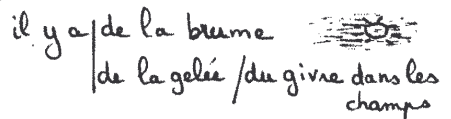 il y a de la brume
de la gelée / du givre dans les
champs